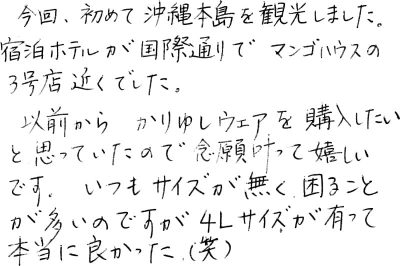 今回、初めて沖縄本島を観光しました。
宿泊ホテルが国際通りで マンゴハウスの
3号店近くでした。
以前から かりゆしウェアを購入したい
と思っていたので念願叶って嬉しい
です. いつもサイズが無く困ること
が多いのですが 4Lサイズが有って
本当に良かった.(笑)